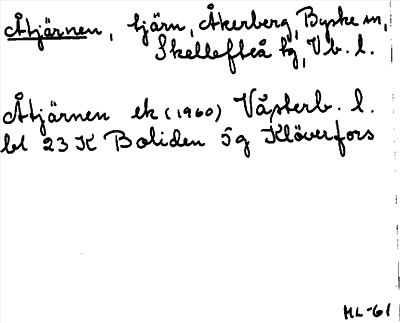 Åtjärnen, tjärn, Åkerberg, Byske sn,
Skellefteå tg, Vb. l.
Åtjärnen ek (1960) Västerb. l.
bl 23 K Boliden 5g Klöverfors
HL-61